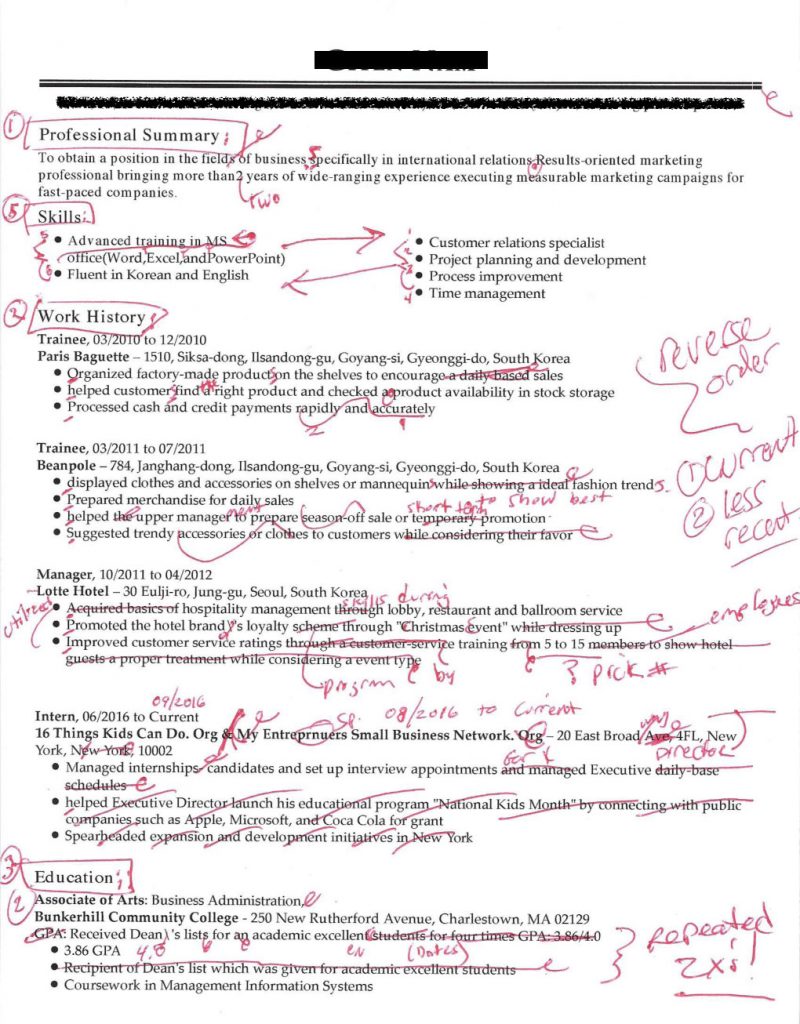 ① Professional Summary;
To obtain a position in the fields of business specifically in international relations Results-oriented marketing
professional bringing more than2 years of wide-ranging experience executing measurable marketing campaigns for
fast-paced companies.
two
⑤ Skills:
5 • Advanced training in MS
office(Word,Excel,andPowerPoint)
6 • Fluent in Korean and English
1 • Customer relations specialist
2 • Project planning and development
3 • Process improvement
4 • Time management
② Work History;
Trainee, 03/2010 to 12/2010
Paris Baguette – 1510, Siksa-dong, Ilsandong-gu, Goyang-si, Gyeonggi-do, South Korea
• Organized factory-made products on the shelves to encourage a daily based sales
• helped customer find a right product and checked a product availability in stock storage
the
• Processed cash and credit payments rapidly and accurately
2 1
reverse
order
Trainee, 03/2011 to 07/2011
Beanpole – 784, Janghang-dong, Ilsandong-gu, Goyang-si, Gyeonggi-do, South Korea
• displayed clothes and accessories on shelves or mannequin while showing a ideal fashion trends.
• Prepared merchandise for daily sales
short term to show best
• helped the upper manager to prepare season-off sale or temporary promotion
ment
• Suggested trendy accessories or clothes to customers while considering their favor
① Current
② less
recent
Manager, 10/2011 to 04/2012
Lotte Hotel – 30 Eulji-ro, Jung-gu, Seoul, South Korea
utilized skills during
• Acquired basics of hospitality management through lobby, restaurant and ballroom service
• Promoted the hotel brand's loyalty scheme through "Christmas Event" while dressing up
employees
• Improved customer service ratings through a customer-service training from 5 to 15 members to show hotel
guests a proper treatment while considering a event type
program by ? pick #
09/2016
Intern, 06/2016 to Current
sp. 08/2016 to Current
16 Things Kids Can Do. Org & My Entreprnuers Small Business Network. Org – 20 East Broad Ave, 4FL, New
York, New York, 10002
for Director
• Managed internships candidates and set up interview appointments and managed Executive daily-base
schedules
• helped Executive Director launch his educational program "National Kids Month" by connecting with public
companies such as Apple, Microsoft, and Coca Cola for grant
• Spearheaded expansion and development initiatives in New York
③ Education;
② Associate of Arts: Business Administration,
Bunkerhill Community College - 250 New Rutherford Avenue, Charlestown, MA 02129
GPA: Received Dean's lists for an academic excellent students for four times GPA: 3.86/4.0
• 3.86 GPA 4.0 (Dates)
• Recipient of Dean's list which was given for academic excellent students
• Coursework in Management Information Systems
repeated
2x's!